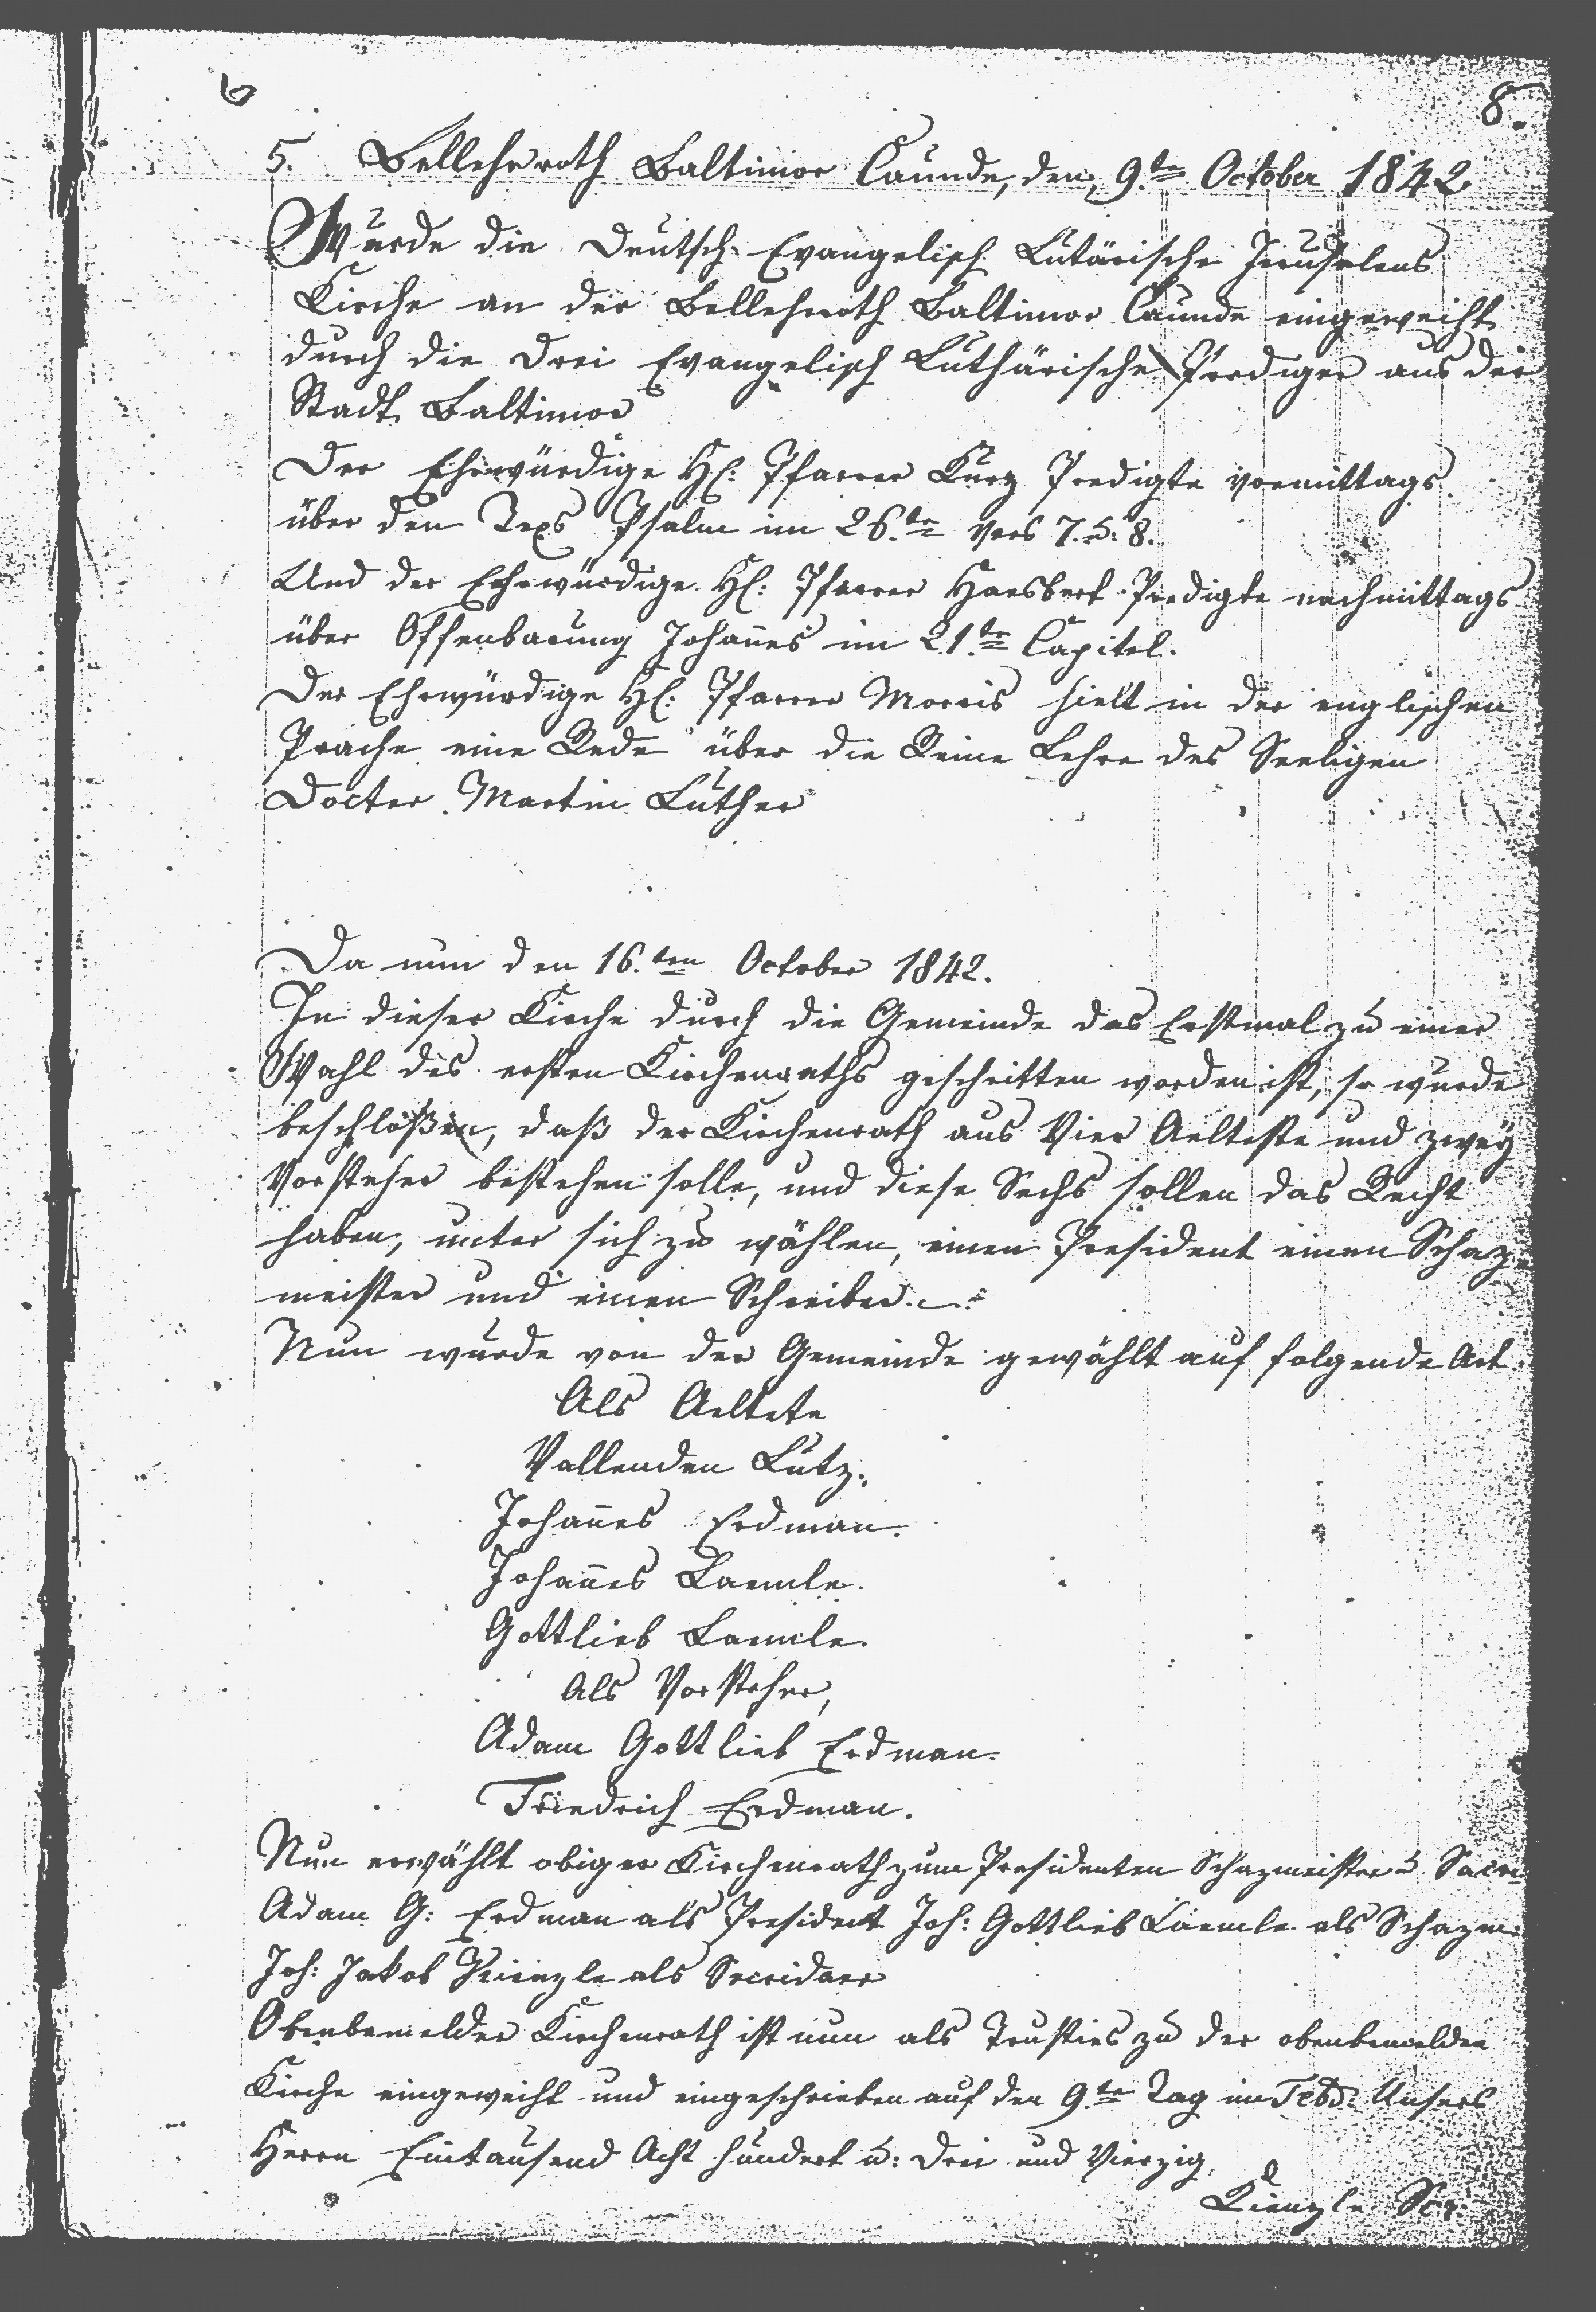 6
8.
5. Bellehrroth Baltimor Caunde, den, 9.te October 1842
Wurde die Deutsch Evangelisch Lutärische Jerusalems
Kirche an der Bellehrroth Baltimor Caunde eingeweiht
durch die Drei Evangelisch Luthärische Prediger aus der
Stadt Baltimor
Der Ehrwürdige H: Pfarrer Kurz Predigte vormittags
über den Text Psalm im 26.te Vers 7. u: 8.
Und der Ehrwürdige H: Pfarrer Haesbert Predigte nachmittags
über Offenbarung Johanes im 21.te Capitel.
Der Ehrwürdige H: Pfarrer Morris hielt in der englischen
Prache eine Rede über die Reine Lehre des Seeligen
Docter Martin Luther
Da nun den 16.ten October 1842.
In dieser Kirche durch die Gemeinde das Erstmal zu einer
Wahl des ersten Kirchenraths geschritten worden ist, so wurde
beschloßen, daß der Kirchenrath aus Vier Aelteste und zwey
Vorsteher bestehen solle, und diese Sechs sollen das Recht
haben, unter sich zu wählen, einen President einen Schaz-
meister und einen Schreiber.
Nun wurde von der Gemeinde gewählt auf folgende Art.
Als Aeltete
Vallenden Lutz.
Johanes Erdman.
Johanes Laemle.
Gottlieb Laemle.
Als Vorsteher,
Adam Gottlieb Erdman.
Friedrich Erdman.
Nun erwählt obiger Kirchenrath zum Presidenten Schazmeister u
Adam G: Erdman als President Joh: Gottlieb Laemle als Schazm
Joh: Jakob Kienzle als Secridaer
Obenbemelder Kirchenrath ist nun als Trusties zu der obenbemelden
Kirche eingeweiht und eingeschrieben auf den 9.te Tag im Febr: Unsers
Herrn Eintausend Acht hundert u: Drei und Vierzig.
Kienzle Scr.